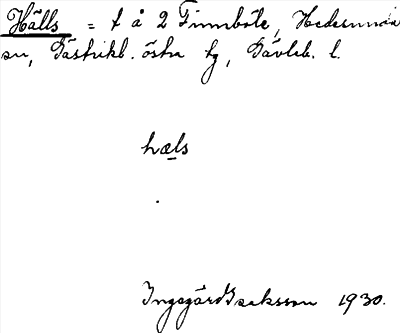 Hälls = t å 2 Finnböle, Hedesunda
sn, Gästrikl. östra tg, Gävleb. l.
hæls
Ingegärd Isaksson 1930.